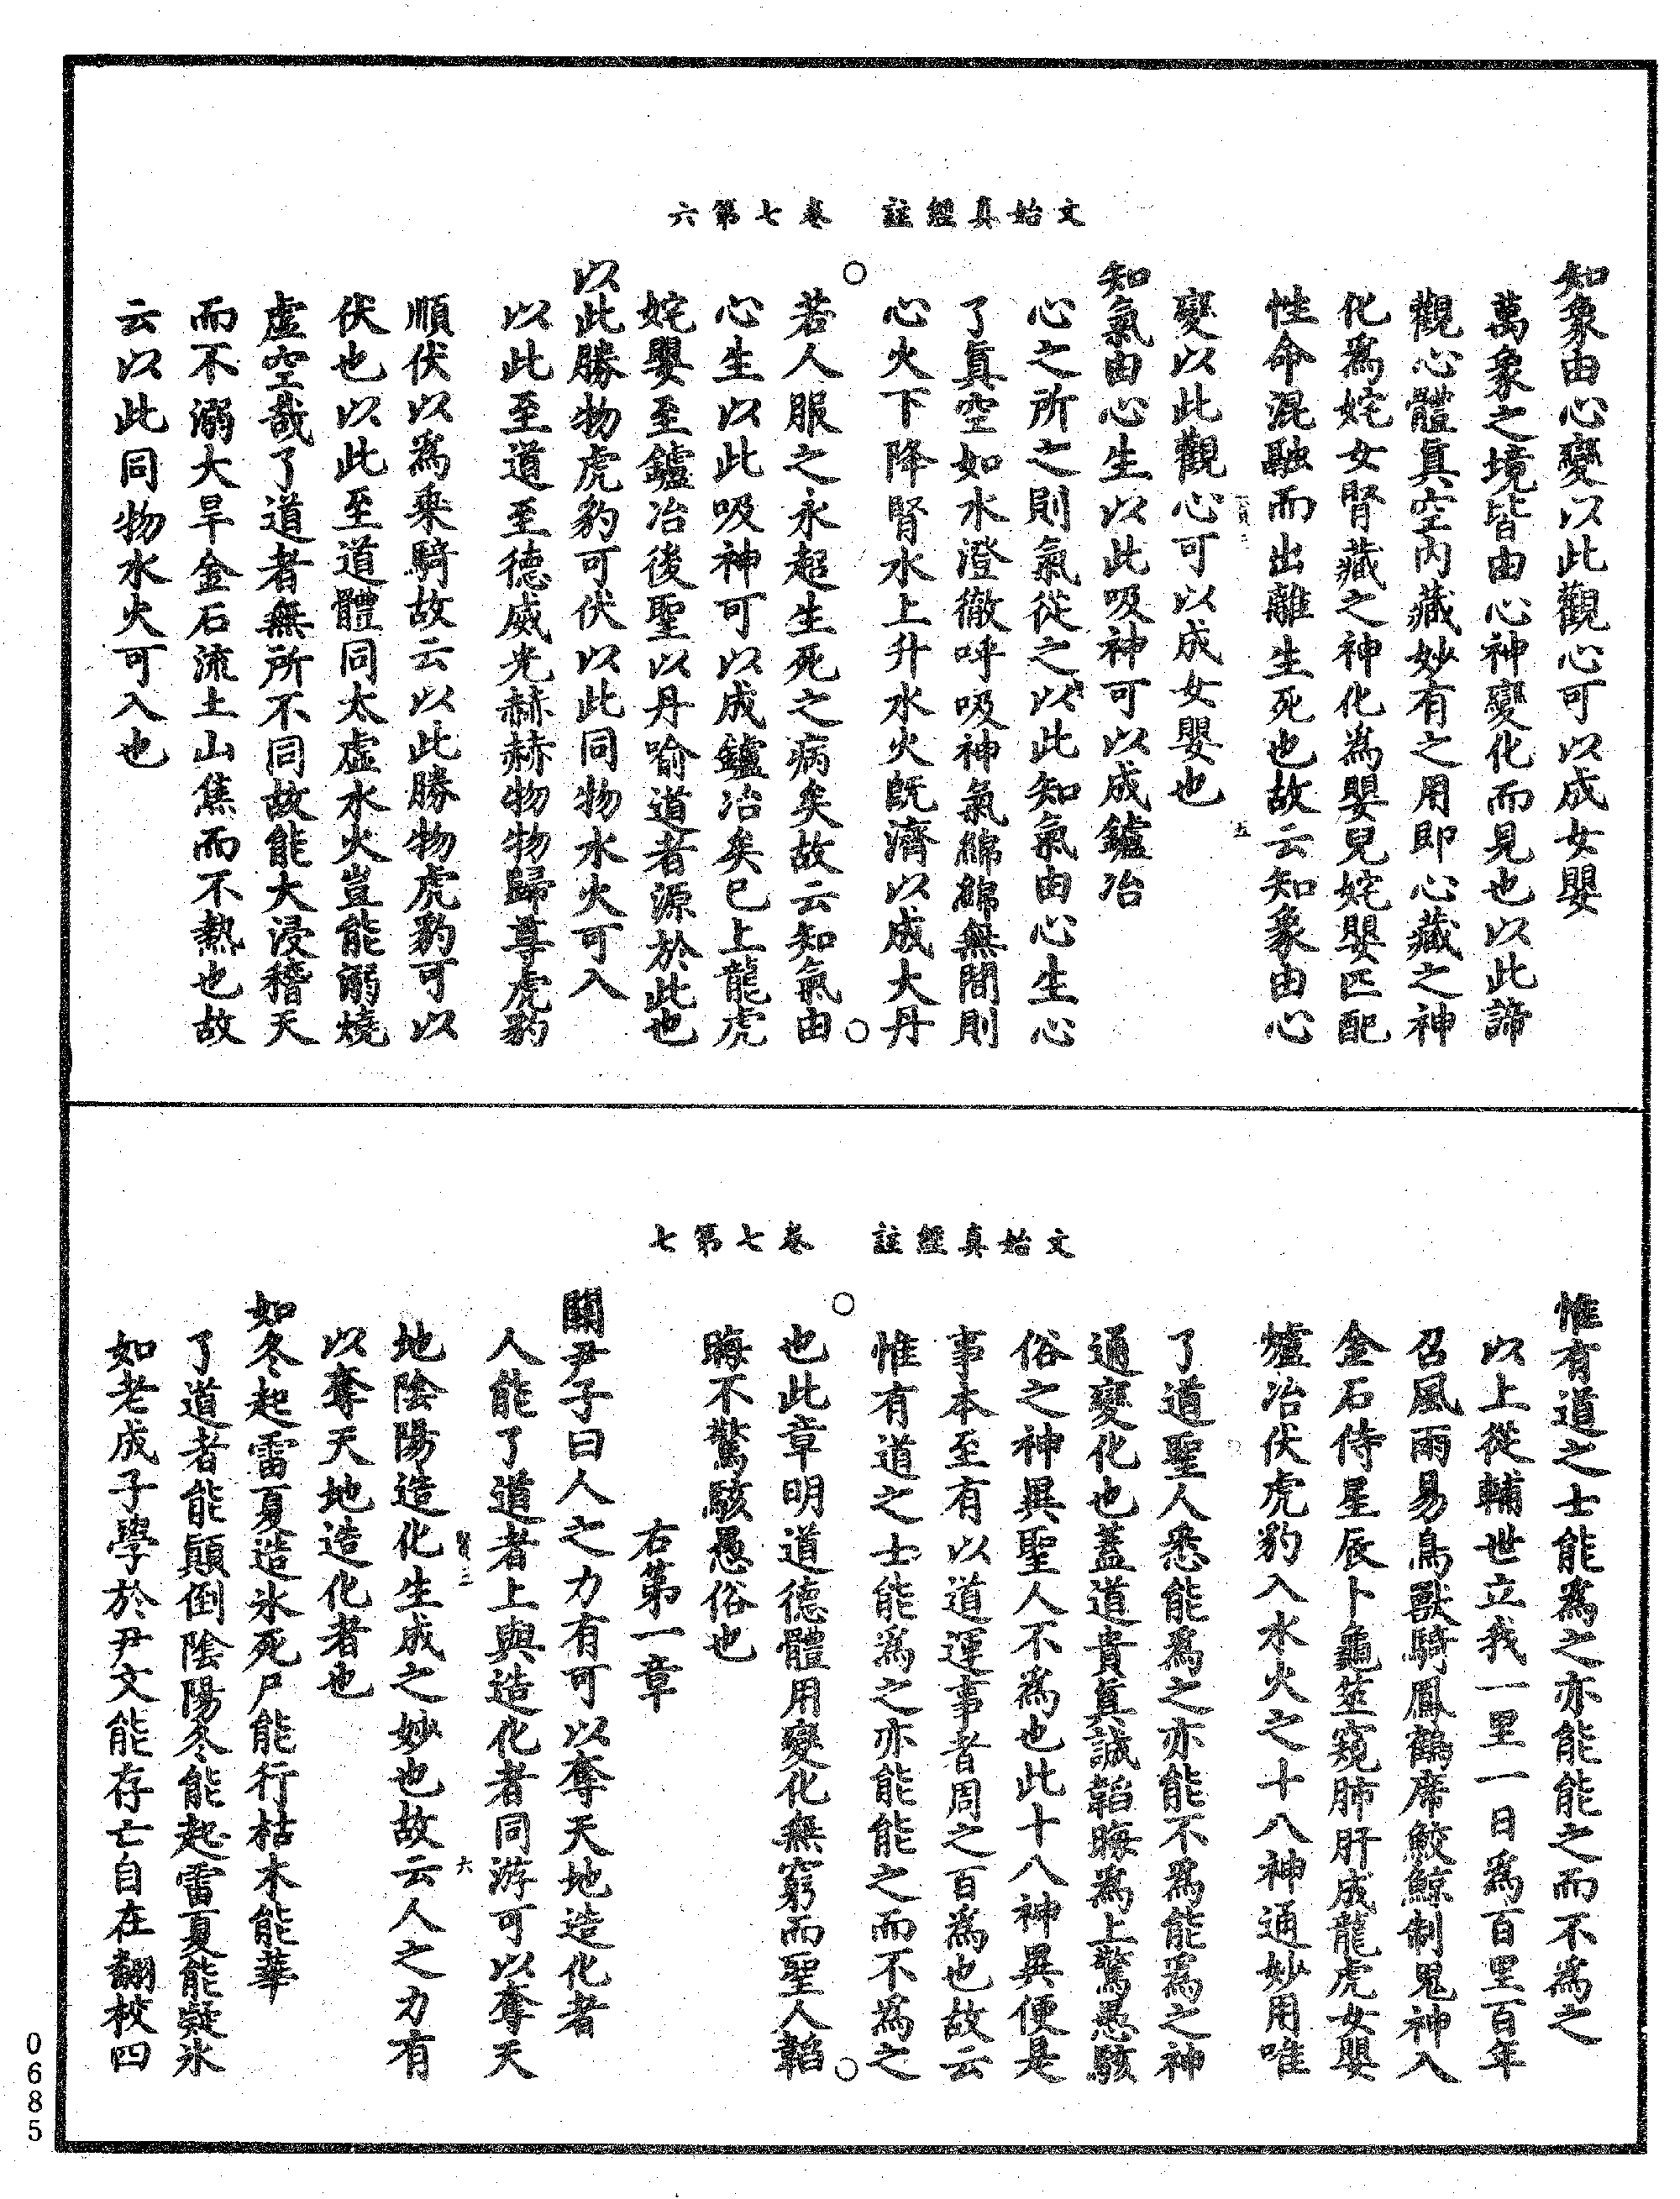 文始真經註　卷七第六
知象由心變以此觀心可以成女嬰
萬象之境皆由心神變化而見也以此諦
觀心體真空內藏妙有之用即心藏之神
化為姹女腎藏之神化為嬰兒姹嬰匹配
性命混融而出離生死也故云知象由心
變以此觀心可以成女嬰也
五
知氣由心生以此吸神可以成鑪冶
心之所之則氣從之以此知氣由心生心
了真空如水澄徹呼吸神氣綿綿無間則
心火下降腎水上升水火既濟以成大丹
若人服之永超生死之病矣故云知氣由
心生以此吸神可以成鑪冶矣已上龍虎
姹嬰至鑪冶後聖以丹喻道者源於此也
以此勝物虎豹可伏以此同物水火可入
以此至道至德威光赫赫物物歸尊虎豹
順伏以為乘騎故云以此勝物虎豹可以
伏也以此至道體同太虛水火豈能溺燒
虛空哉了道者無所不同故能大浸稽天
而不溺大旱金石流土山焦而不熱也故
云以此同物水火可入也
文始真經註　卷七第七
惟有道之士能為之亦能能之而不為之
以上從輔世立我一里一日為百里百年
召風雨易鳥獸騎鳳鶴席鮫鯨制鬼神入
金石侍星辰卜龜筮窺肺肝成龍虎女嬰
爐冶伏虎豹入水火之十八神通妙用唯
了道聖人悉能為之亦能不為能為之神
通變化也蓋道貴真誠韜晦為上驚愚駭
俗之神異聖人不為也此十八神異便是
事本至有以道運事者周之百為也故云
惟有道之士能為之亦能能之而不為之
也此章明道德體用變化無窮而聖人韜
晦不驚駭愚俗也
右第一章
關尹子曰人之力有可以奪天地造化者
人能了道者上與造化者同游可以奪天
六
地陰陽造化生成之妙也故云人之力有
以奪天地造化者也
如冬起雷夏造氷死尸能行枯木能華
了道者能顛倒陰陽冬能起雷夏能凝氷
如老成子學於尹文能存亡自在翻校四
0685